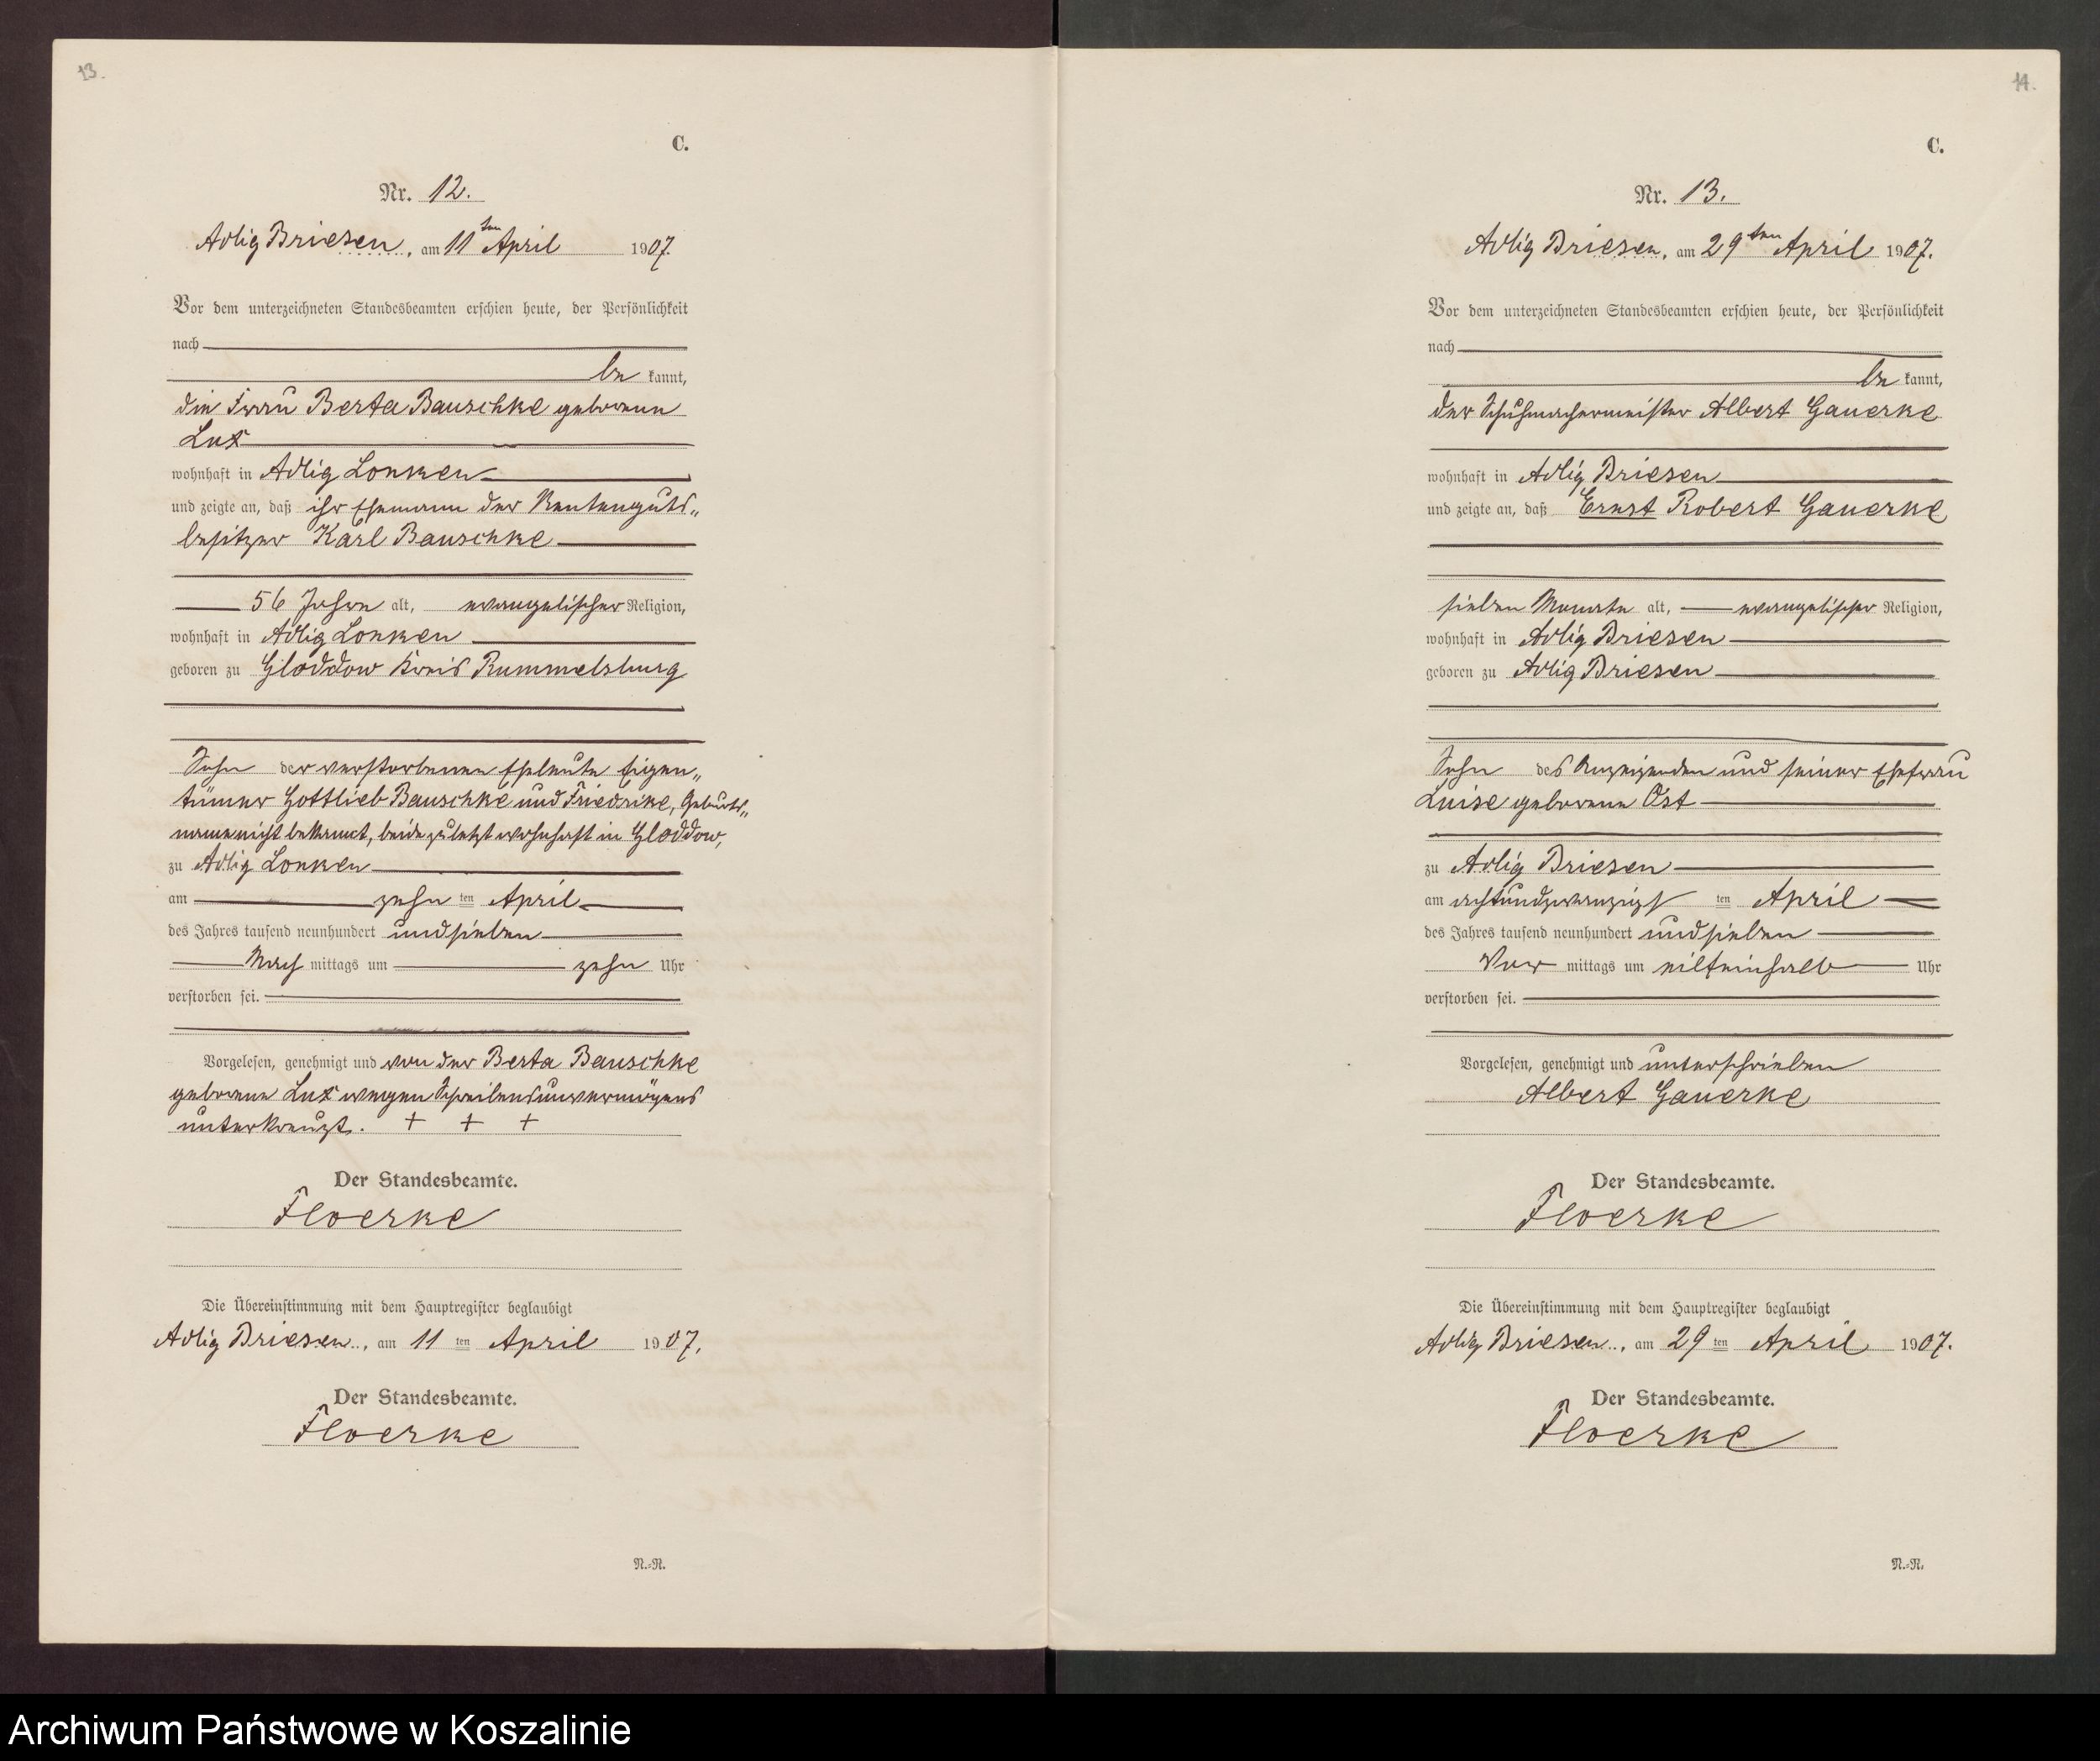 13.
C.
Nr. 12.
Adlig Briesen, am 11ten April 1907.
Vor dem unterzeichneten Standesbeamten erschien heute, der Persönlichkeit
nach
be kannt,
die Frau Berta Bauschke geborene
Lux
wohnhaft in Adlig Lonken
und zeigte an, daß ihr Ehemann der Rentenguts„
besitzer Karl Bauschke
56 Jahre alt, evangelischer Religion,
wohnhaft in Adlig Lonken
geboren zu Gloddow Kreis Rummelsburg
Sohn der verstorbenen Eheleute Eigen„
tümer Gottlieb Bauschke und Friedrike, Geburts„
name nicht bekannt, beide zuletzt wohnhaft in Gloddow,
zu Adlig Lonken
am zehn ten April
des Jahres tausend neunhundert und sieben
Nach mittags um zehn Uhr
verstorben sei.
Vorgelesen, genehmigt und von der Berta Bauschke
geborene Lux wegen Schreibensunvermögens
unterkreuzt. + + +
Der Standesbeamte.
Floerke
Die Übereinstimmung mit dem Hauptregister beglaubigt
Adlig Briesen, am 11 ten April 1907.
Der Standesbeamte.
Floerke
N.-N.
14.
C.
Nr. 13.
Adlig Briesen, am 29ten April 1907.
Vor dem unterzeichneten Standesbeamten erschien heute, der Persönlichkeit
nach
be kannt,
der Schuhmachermeister Albert Gauerke
wohnhaft in Adlig Briesen
und zeigte an, daß Ernst Robert Gauerke
sieben Monate alt, evangelischer Religion,
wohnhaft in Adlig Briesen
geboren zu Adlig Briesen
Sohn des Anzeigenden und seiner Ehefrau
Luise geborene Ost
zu Adlig Briesen
am achtundzwanzigs ten April
des Jahres tausend neunhundert und sieben
Vor mittags um elfeinhalb Uhr
verstorben sei.
Vorgelesen, genehmigt und unterschrieben
Albert Gauerke
Der Standesbeamte.
Floerke
Die Übereinstimmung mit dem Hauptregister beglaubigt
Adlig Briesen, am 29 ten April 1907.
Der Standesbeamte.
Floerke
N.-N.
Archiwum Państwowe w Koszalinie